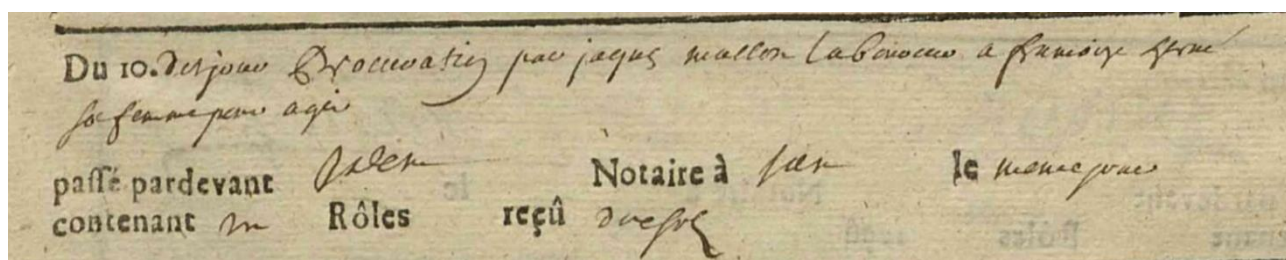 Du 10. dud jour Procuration par jaques mallon laboureur a francoise
sa femme pour agir
passé pardevant idem Notaire à idem le meme jour
contenant un Rôles reçû